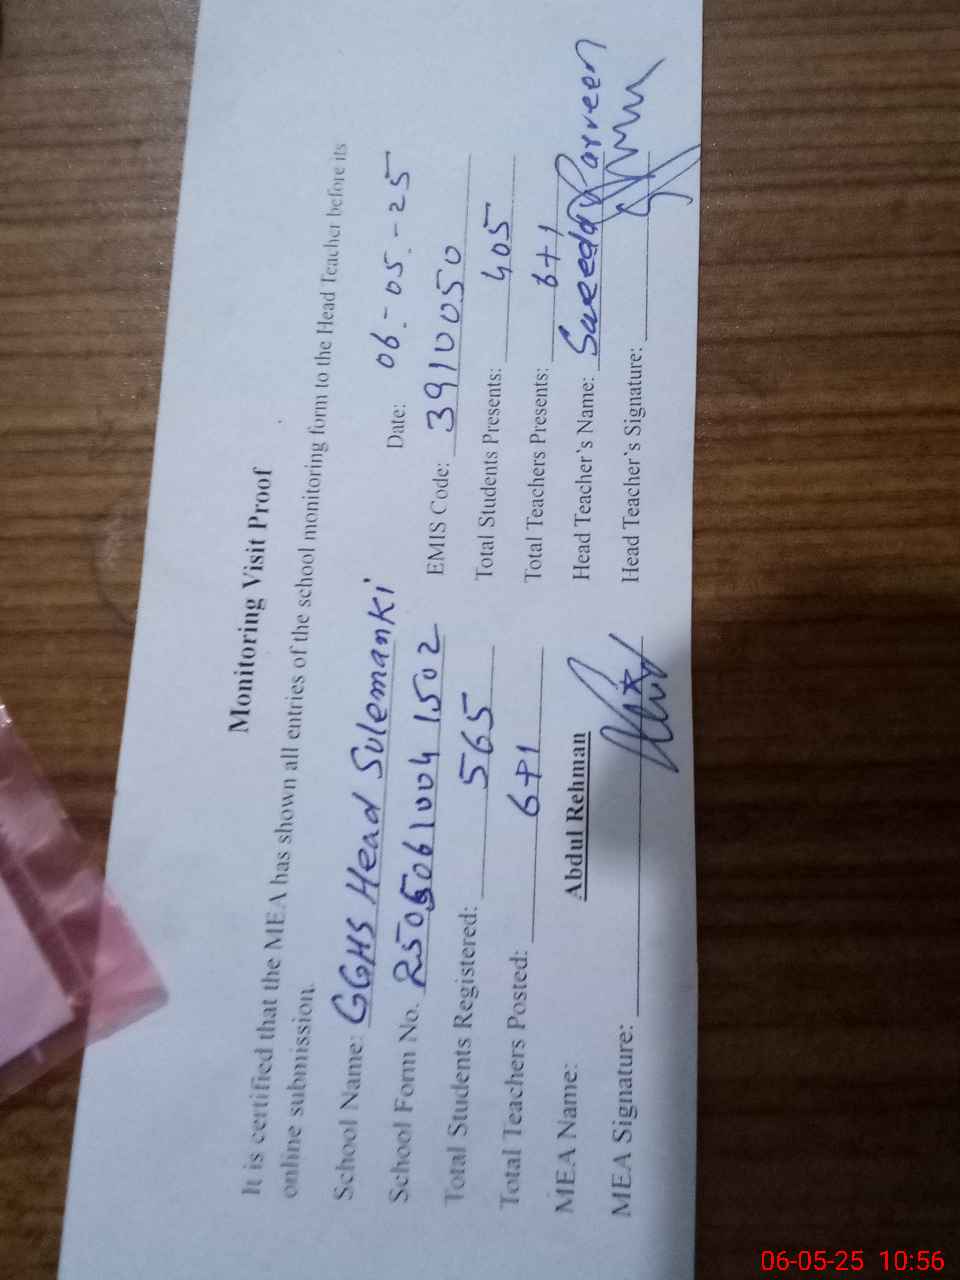 Monitoring Visit Proof
It is certified that the MEA has shown all entries of the school monitoring form to the Head Teacher before its
online submission.
School Name: GGHS Head Sulemanki Date: 06-05-25
School Form No. 25050610041502 EMIS Code: 3910050
Total Students Registered: 565 Total Students Presents: 405
Total Teachers Posted: 6+1 Total Teachers Presents: 6+1
MEA Name: Abdul Rehman Head Teacher's Name: Saeeda Parveen
MEA Signature: Head Teacher's Signature:
06-05-25 10:56